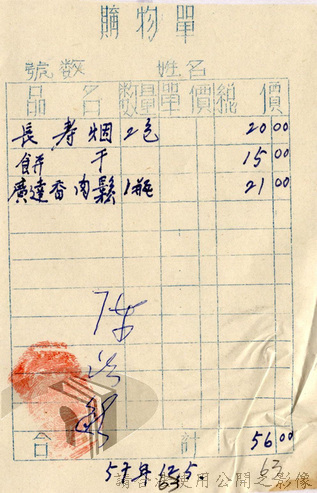 購物單
號數 姓名
品名 數量 單價 總價
長寿烟 2包 20 00
餅干 15 00
廣達香肉鬆 1瓶 21 00
合計 56 00
57年12.5.
63
63
請合法使用公開之影像